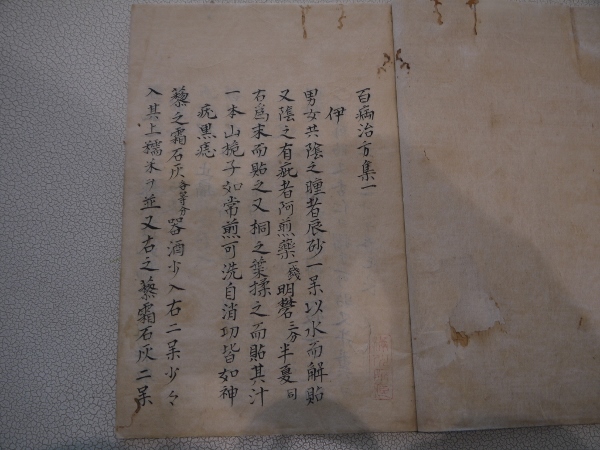 百病治方集一
伊
男女共陰之腫者辰砂一呆以水而解貼
又陰之有疵者阿煎藥一錢明礬三分半夏同
右為末而貼之又桐之葉揉之而貼其汁
一本山梔子如常煎可洗自消功皆如神
疣黒痣
藜之霜石灰各等分器酒少入右二呆少々
入其上糯米ヲ並又右之藜霜石灰二呆